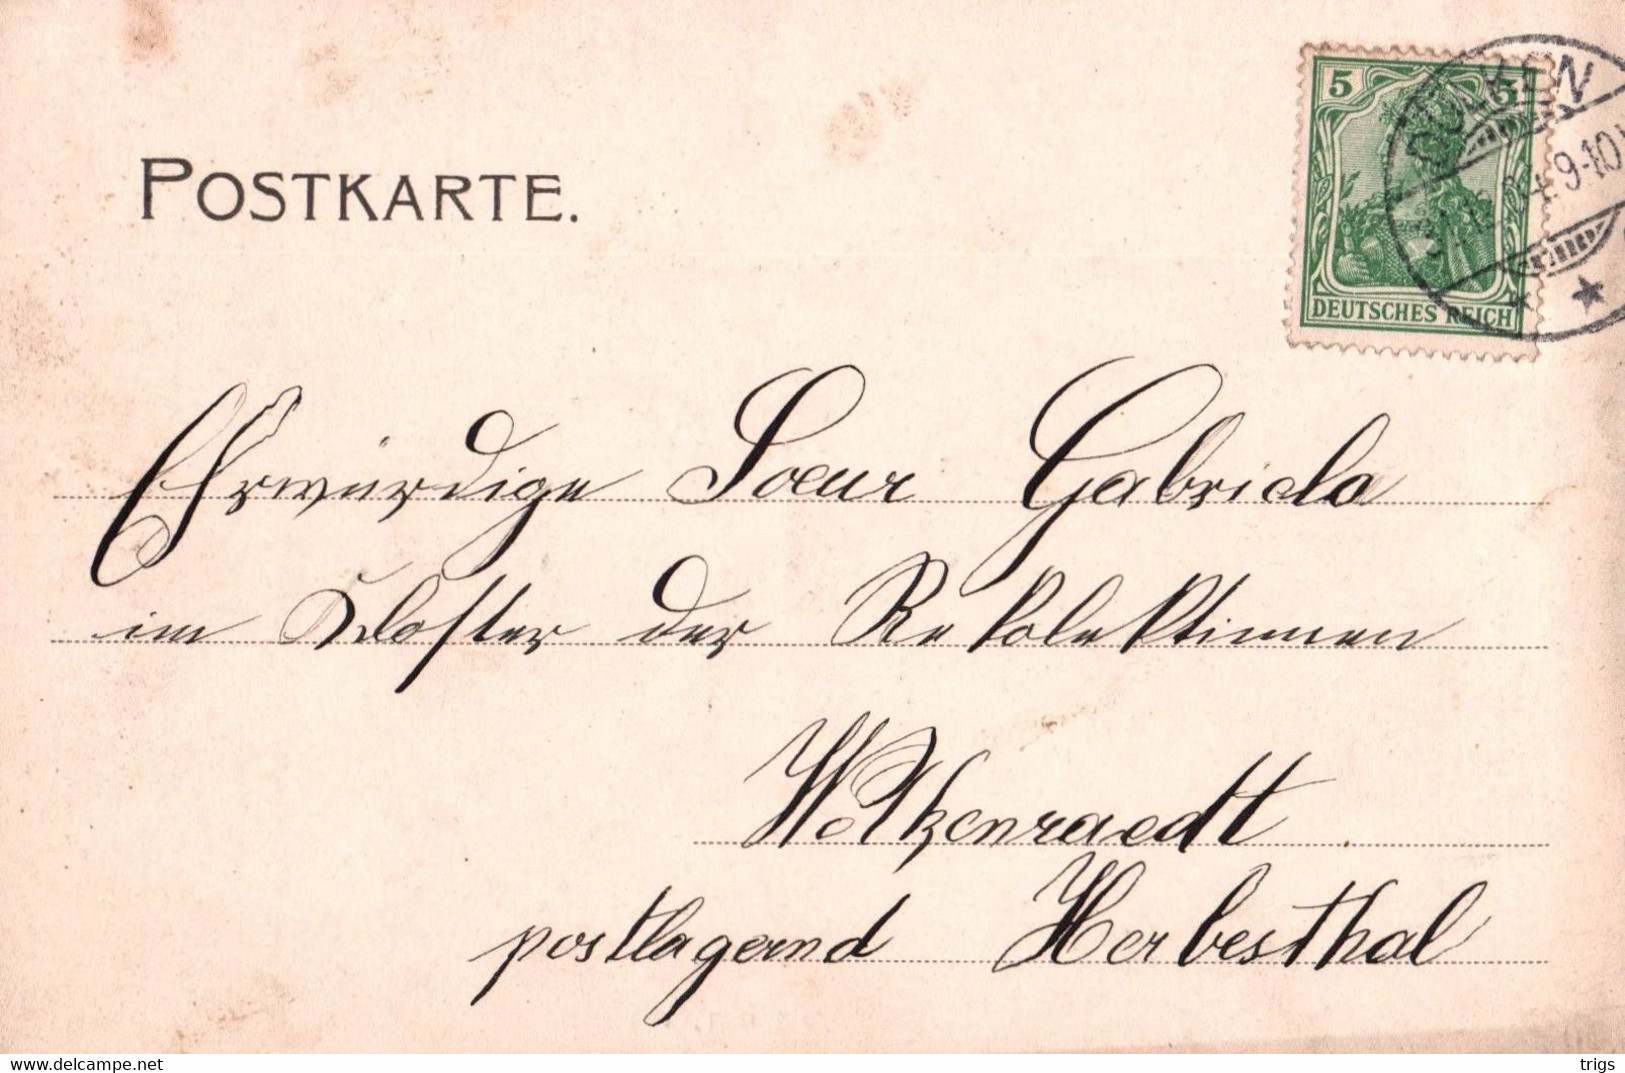 POSTKARTE.
5 5
DEUTSCHES REICH
DÜLKEN
9-10
Ehrwürdige Soeur Gabriela
im Kloster der Rekolektinnen
Welkenraedt
postlagernd Herbesthal
https://www.delcampe.net
trigs